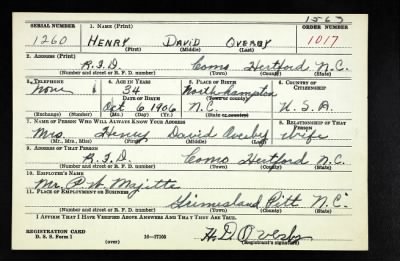 1563
SERIAL NUMBER 1. NAME (Print) ORDER NUMBER
1260 HENRY DAVID OVERBY 1017
(First) (Middle) (Last)
2. ADDRESS (Print)
R.F.D. Como Hertford N.C.
(Number and street or R. F. D. number) (Town) (County) (State)
3. TELEPHONE 4. AGE IN YEARS 5. PLACE OF BIRTH 6. COUNTRY OF CITIZENSHIP
None 34 Northhampton
DATE OF BIRTH (Town or county)
Oct 6 1906 N.C. U.S.A.
(Exchange) (Number) (Mo.) (Day) (Yr.) (State or country)
7. NAME OF PERSON WHO WILL ALWAYS KNOW YOUR ADDRESS 8. RELATIONSHIP OF THAT PERSON
Mrs. Henry David Overby wife
(Mr., Mrs., Miss) (First) (Middle) (Last)
9. ADDRESS OF THAT PERSON
R.F.D. Como Hertford N.C.
(Number and street or R. F. D. number) (Town) (County) (State)
10. EMPLOYER'S NAME
Mr. P. W. Majette
11. PLACE OF EMPLOYMENT OR BUSINESS
Grimesland Pitt N.C.
(Number and street or R. F. D. number) (Town) (County) (State)
I AFFIRM THAT I HAVE VERIFIED ABOVE ANSWERS AND THAT THEY ARE TRUE.
REGISTRATION CARD
D. S. S. Form 1 (over) 16-17105 H. D. Overby
(Registrant's signature)